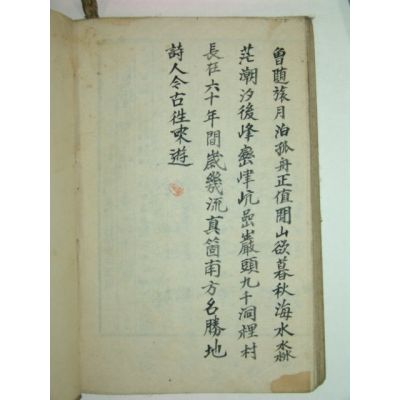 曾隨旅月泊孤舟正值關山欲暮秋海水淼
茫潮汐後峰巒峍屼嵓巖頭九千洞裡村
長在六十年間歲幾流真箇南方名勝地
詩人今古徃來遊